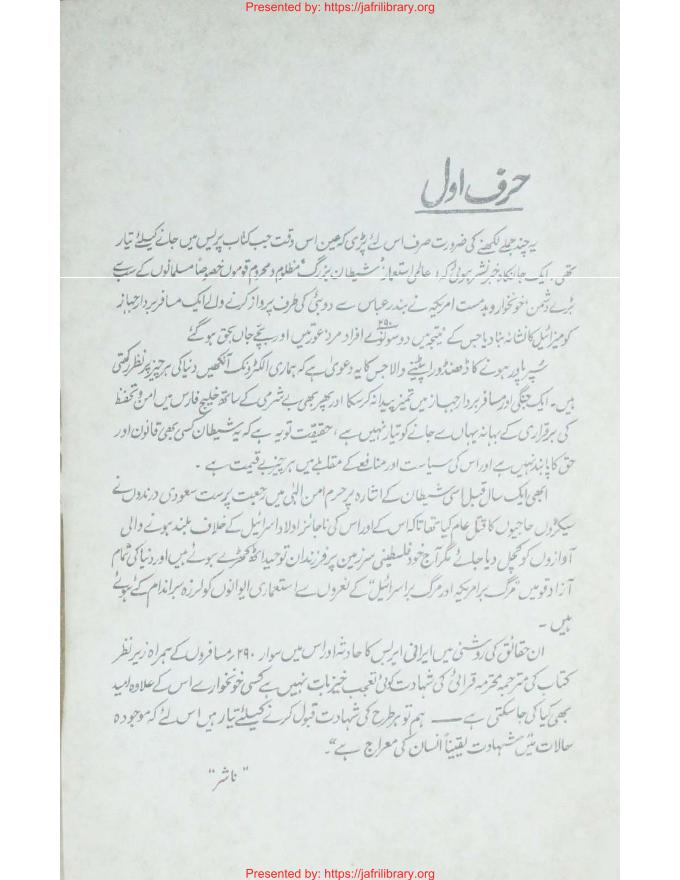 Presented by: https://jafrilibrary.org
حرف اول
یہ چند جملے لکھنے کی ضرورت صرف اس لئے پڑی کہ عین اس وقت جب کتاب پریس میں جانے کیلئے تیار
تھی۔ ایک جانکاہ خبر نشر ہوئی کہ، عالمی استعمار "شیطان بزرگ" مظلوم و محروم قوموں خصوصاً مسلمانوں کے سب سے
بڑے دشمن، خونخوار و بدمست امریکہ نے بندرعباس سے دوبئی کی طرف پرواز کرنے والے ایک مسافر بردار جہاز
کو میزائیل کا نشانہ بنا دیا جس کے نتیجہ میں دوسو نوّے ۲۹۰ افراد مرد عورتیں اور بچے جاں بحق ہو گئے
سُپر پاور ہونے کا ڈھنڈورا پیٹنے والا جس کا یہ دعویٰ ہے کہ ہماری الکٹرونک آنکھیں دنیا کی ہر چیز پر نظر رکھتی
ہیں۔ ایک جنگی اور مسافر بردار جہاز میں تمیز پیدا نہ کر سکا اور پھر بھی بے شرمی کے ساتھ خلیج فارس میں امن و تحفظ
کی برقراری کے بہانہ یہاں سے جانے کو تیار نہیں ہے، حقیقت تو یہ ہے کہ یہ شیطان کسی بھی قانون اور
حق کا پابند نہیں ہے اور اس کی سیاست اور منافعے کے مقابلے میں ہر چیز بے قیمت ہے ۔
ابھی ایک سال قبل اسی شیطان کے اشارہ پر حرم امن الٰہی میں رجعت پرست سعودی درندوں نے
سیکڑوں حاجیوں کا قتل عام کیا تھا تاکہ اس کے اور اس کی ناجائز اولاد اسرائیل کے خلاف بلند ہونے والی
آوازوں کو کچل دیا جائے مگر آج خود فلسطینی سرزمین پر فرزندان توحید اٹھ کھڑے ہوئے ہیں اور دنیا کی تمام
آزاد قومیں "مرگ بر امریکہ اور مرگ بر اسرائیل" کے نعروں سے استعماری ایوانوں کو لرزہ براندام کئے ہوئے
ہیں ۔
ان حقائق کی روشنی میں ایرانی ایربس کا حادثہ اور اس میں سوار ۲۹۰ مسافروں کے ہمراہ زیر نظر
کتاب کی مترجمہ محترمہ قرائی کی شہادت کوئی تعجب خیز بات نہیں ہے کسی خونخوار سے اس کے علاوہ امید
بھی کیا کی جا سکتی ہے —— ہم تو ہر طرح کی شہادت قبول کرنے کیلئے تیار ہیں اس لئے کہ موجودہ
حالات میں "شہادت یقیناً انسان کی معراج ہے"۔
"ناشر"
Presented by: https://jafrilibrary.org